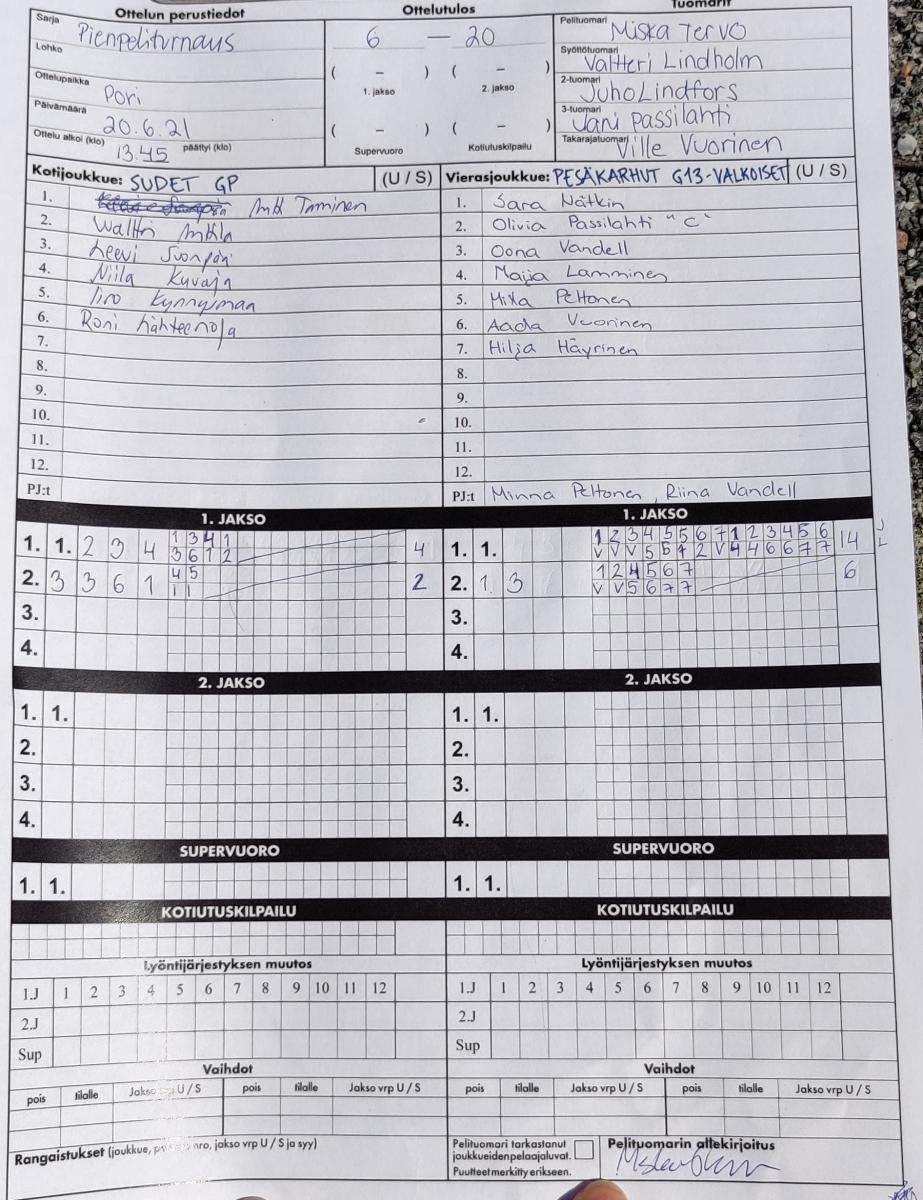 Ottelun perustiedot
Ottelutulos
Tuomarit
Sarja Pienpeliturnaus
6 — 20
Pelituomari Miska Tervo
Lohko
( – ) ( – )
Syöttötuomari Valtteri Lindholm
Ottelupaikka Pori
1. jakso 2. jakso
2-tuomari Juho Lindfors
Päivämäärä 20.6.21
( – ) ( – )
3-tuomari Jani Passilahti
Ottelu alkoi (klo) 13.45 päättyi (klo)
Supervuoro Kotiutuskilpailu
Takarajatuomari Ville Vuorinen
Kotijoukkue: SUDET GP (U / S)
Vierasjoukkue: PESÄKARHUT G13-VALKOISET (U / S)
1. Taminen
1. Sara Nätkin
2. Waltti
2. Olivia Passilahti "C"
3. Leevi
3. Oona Vandell
4. Niila Kuvaja
4. Maija Lamminen
5. Iiro
5. Miia Peltonen
6. Roni Lähteenoja
6. Aada Vuorinen
7.
7. Hilja Häyrinen
8.
8.
9.
9.
10.
10.
11.
11.
12.
12.
PJ:t
PJ:t Minna Peltonen, Riina Vandell
1. JAKSO
1. JAKSO
1. 1. 2 3 4 1 3 4 1 4
3 6 1 2
1. 1. 1 2 3 4 5 5 6 7 1 2 3 4 5 6 14
V V V 5 5 7 2 V 4 4 6 6 7 7
2. 3 3 6 1 4 5 2
1 1
2. 1 3 1 2 4 5 6 7 6
V V 5 6 7 7
3.
3.
4.
4.
2. JAKSO
2. JAKSO
1. 1.
1. 1.
2.
2.
3.
3.
4.
4.
SUPERVUORO
SUPERVUORO
1. 1.
1. 1.
KOTIUTUSKILPAILU
KOTIUTUSKILPAILU
Lyöntijärjestyksen muutos
Lyöntijärjestyksen muutos
1.J 1 2 3 4 5 6 7 8 9 10 11 12
1.J 1 2 3 4 5 6 7 8 9 10 11 12
2.J
2.J
Sup
Sup
Vaihdot
Vaihdot
pois tilalle Jakso vrp U / S pois tilalle Jakso vrp U / S
pois tilalle Jakso vrp U / S pois tilalle Jakso vrp U / S
Rangaistukset (joukkue, jakso vrp U / S ja syy)
Pelituomari tarkastanut
joukkueiden pelaajaluvat.
Puutteet merkitty erikseen.
Pelituomarin allekirjoitus